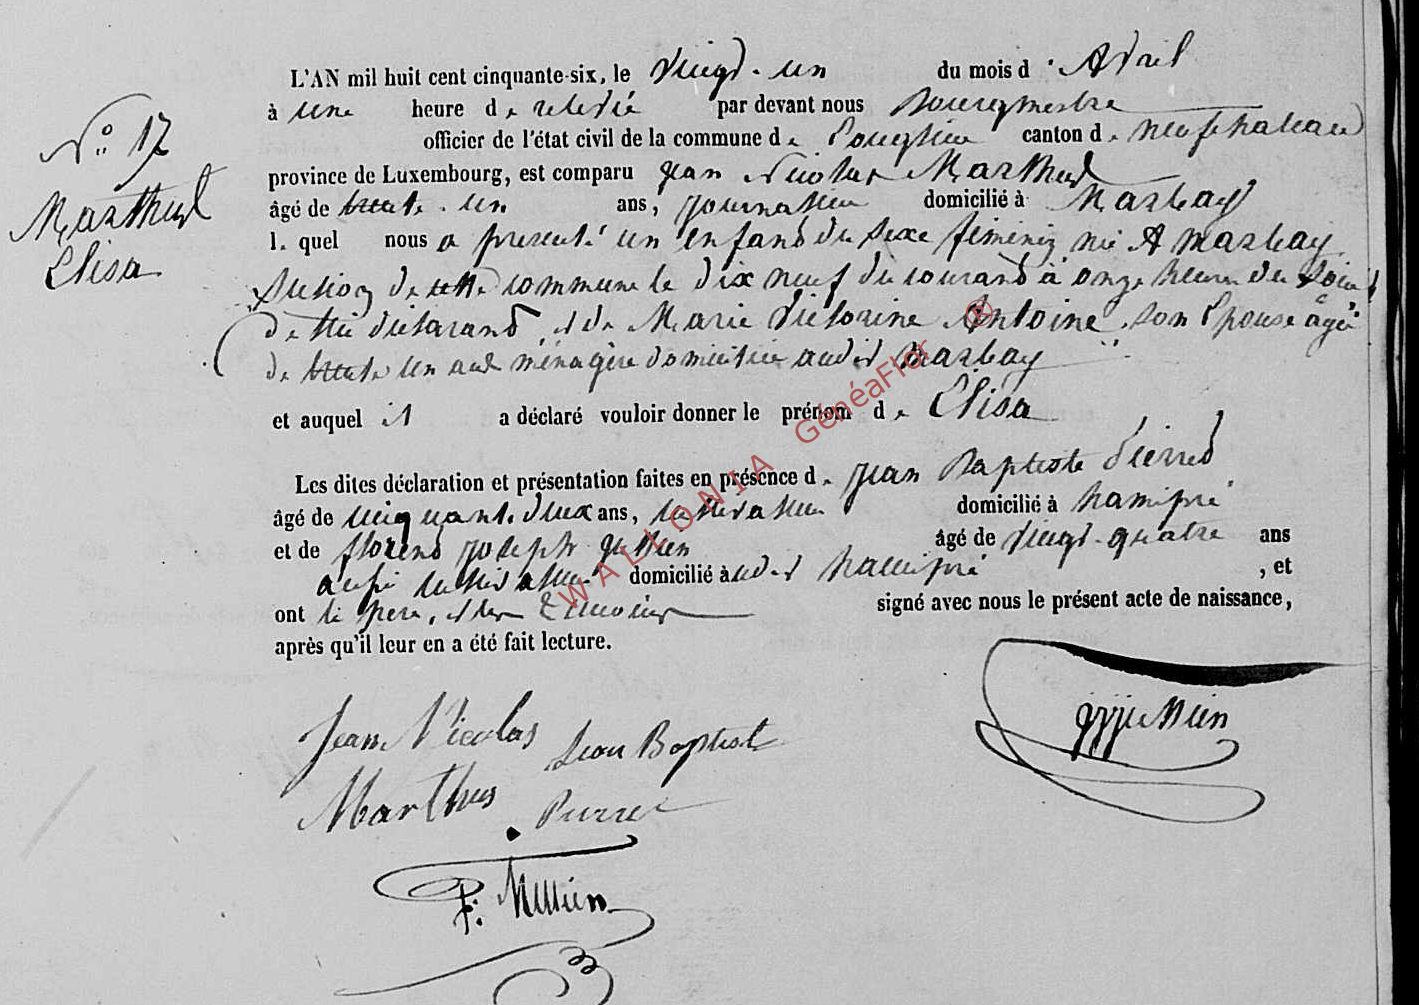 N° 17
Marthus
Elisa
L'AN mil huit cent cinquante-six, le vingt-un du mois d'Avril
à une heure de relevé par devant nous Bourgmestre
officier de l'état civil de la commune de Longlier canton de neufchateau
province de Luxembourg, est comparu jean Nicolas Marthus
âgé de trente-un ans, journalier domicilié à Marbay
l. quel nous a presenté un enfant du sexe féminin né A Marbay
section de cette commune le dix neuf du courant à onze heures du Soir
de lui déclarant, et de Marie Victorine Antoine, son Epouse âgée
de trente un ans ménagère domiciliée audit Marbay
et auquel il a déclaré vouloir donner le prénom de Elisa
Les dites déclaration et présentation faites en présence de jean Baptiste Pierret
âgé de cinquante-deux ans, cultivateur domicilié à hamipré
et de florent joseph âgé de vingt-quatre ans
aussi cultivateur domicilié audit hamipré, et
ont le père, et les témoins signé avec nous le présent acte de naissance,
après qu'il leur en a été fait lecture.
Jean Nicolas
Marthus
Jean Baptist
Pierret
WALLONIA GénéaFlor ®